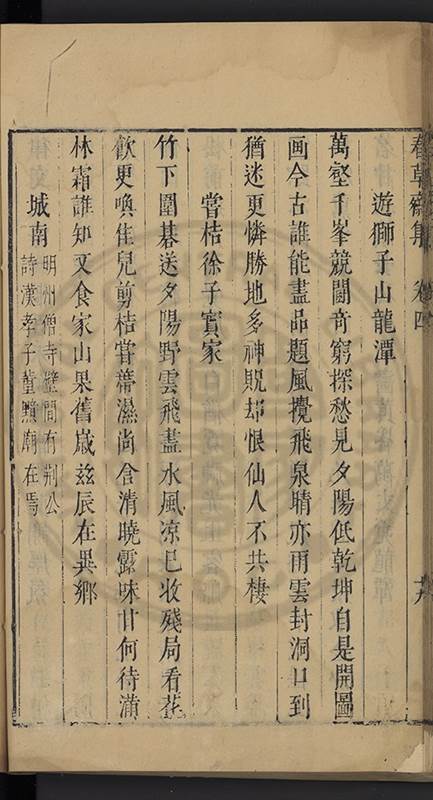 春草齋集 卷四
遊獅子山龍潭
萬壑千峯競鬬奇窮探愁見夕陽低乾坤自是開圖
画今古誰能盡品題風攪飛泉晴亦雨雲封洞口到
猶迷更憐勝地多神貺却恨仙人不共棲
嘗桔徐子實家
竹下圍碁送夕陽野雲飛盡水風凉已收殘局看花
歡更喚佳兒剪桔嘗蒂濕尚含清曉露味甘何待滿
林霜誰知又食家山果舊嵗兹辰在異鄉
城南 明州僧寺壁間有荆公
詩漢孝子董黯廟在焉